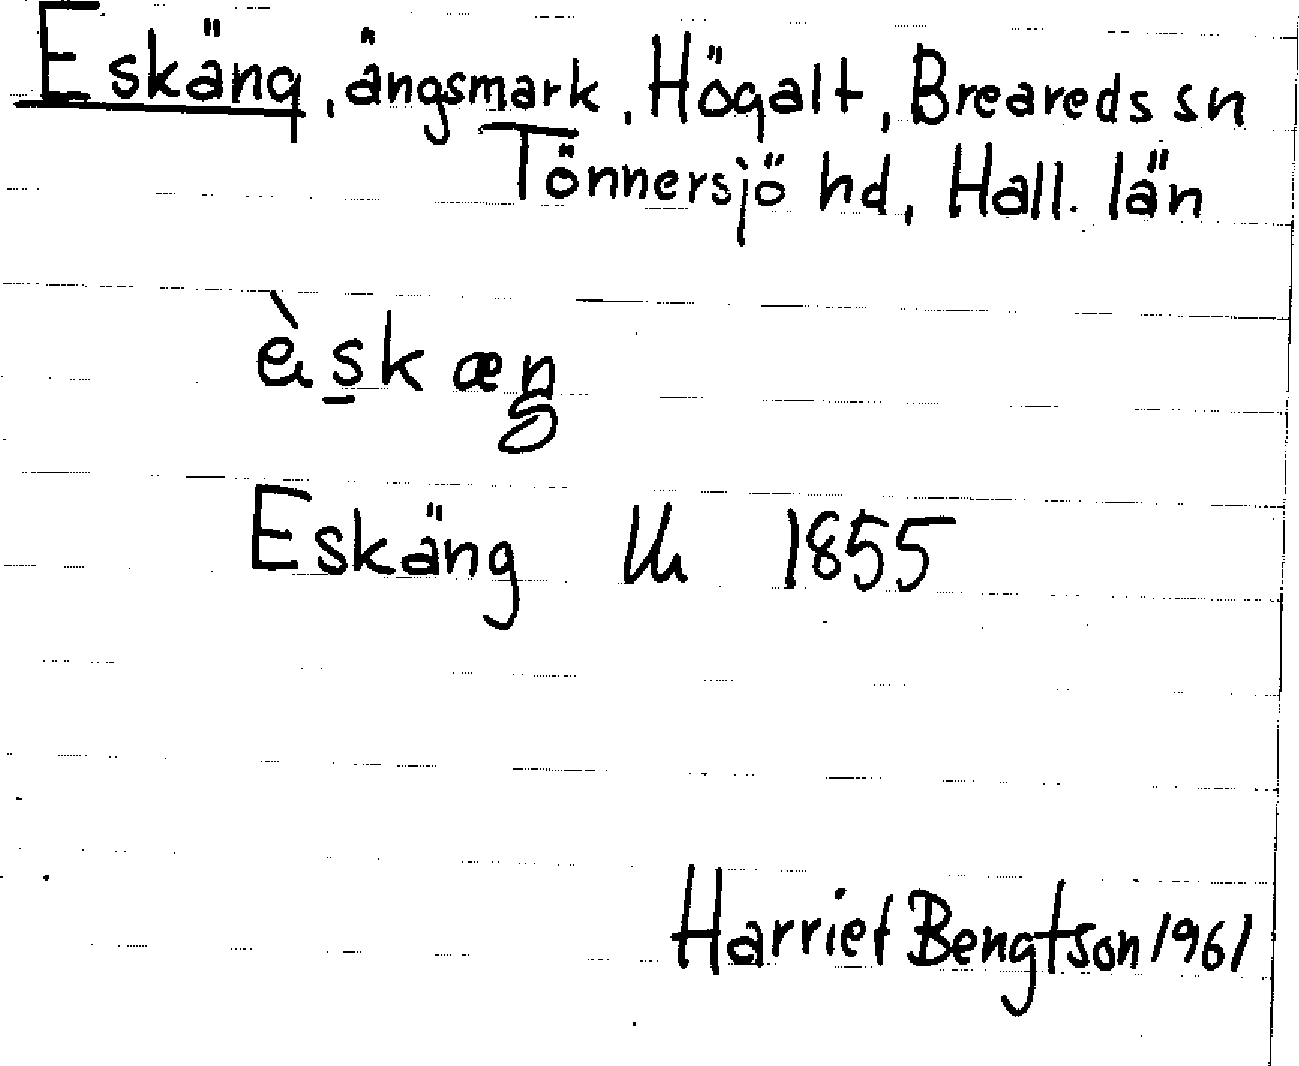 Eskäng, ängsmark, Högalt, Breareds sn
Tönnersjö hd, Hall. län
Eskäng Uh 1855
Harriet Bengtson 1961